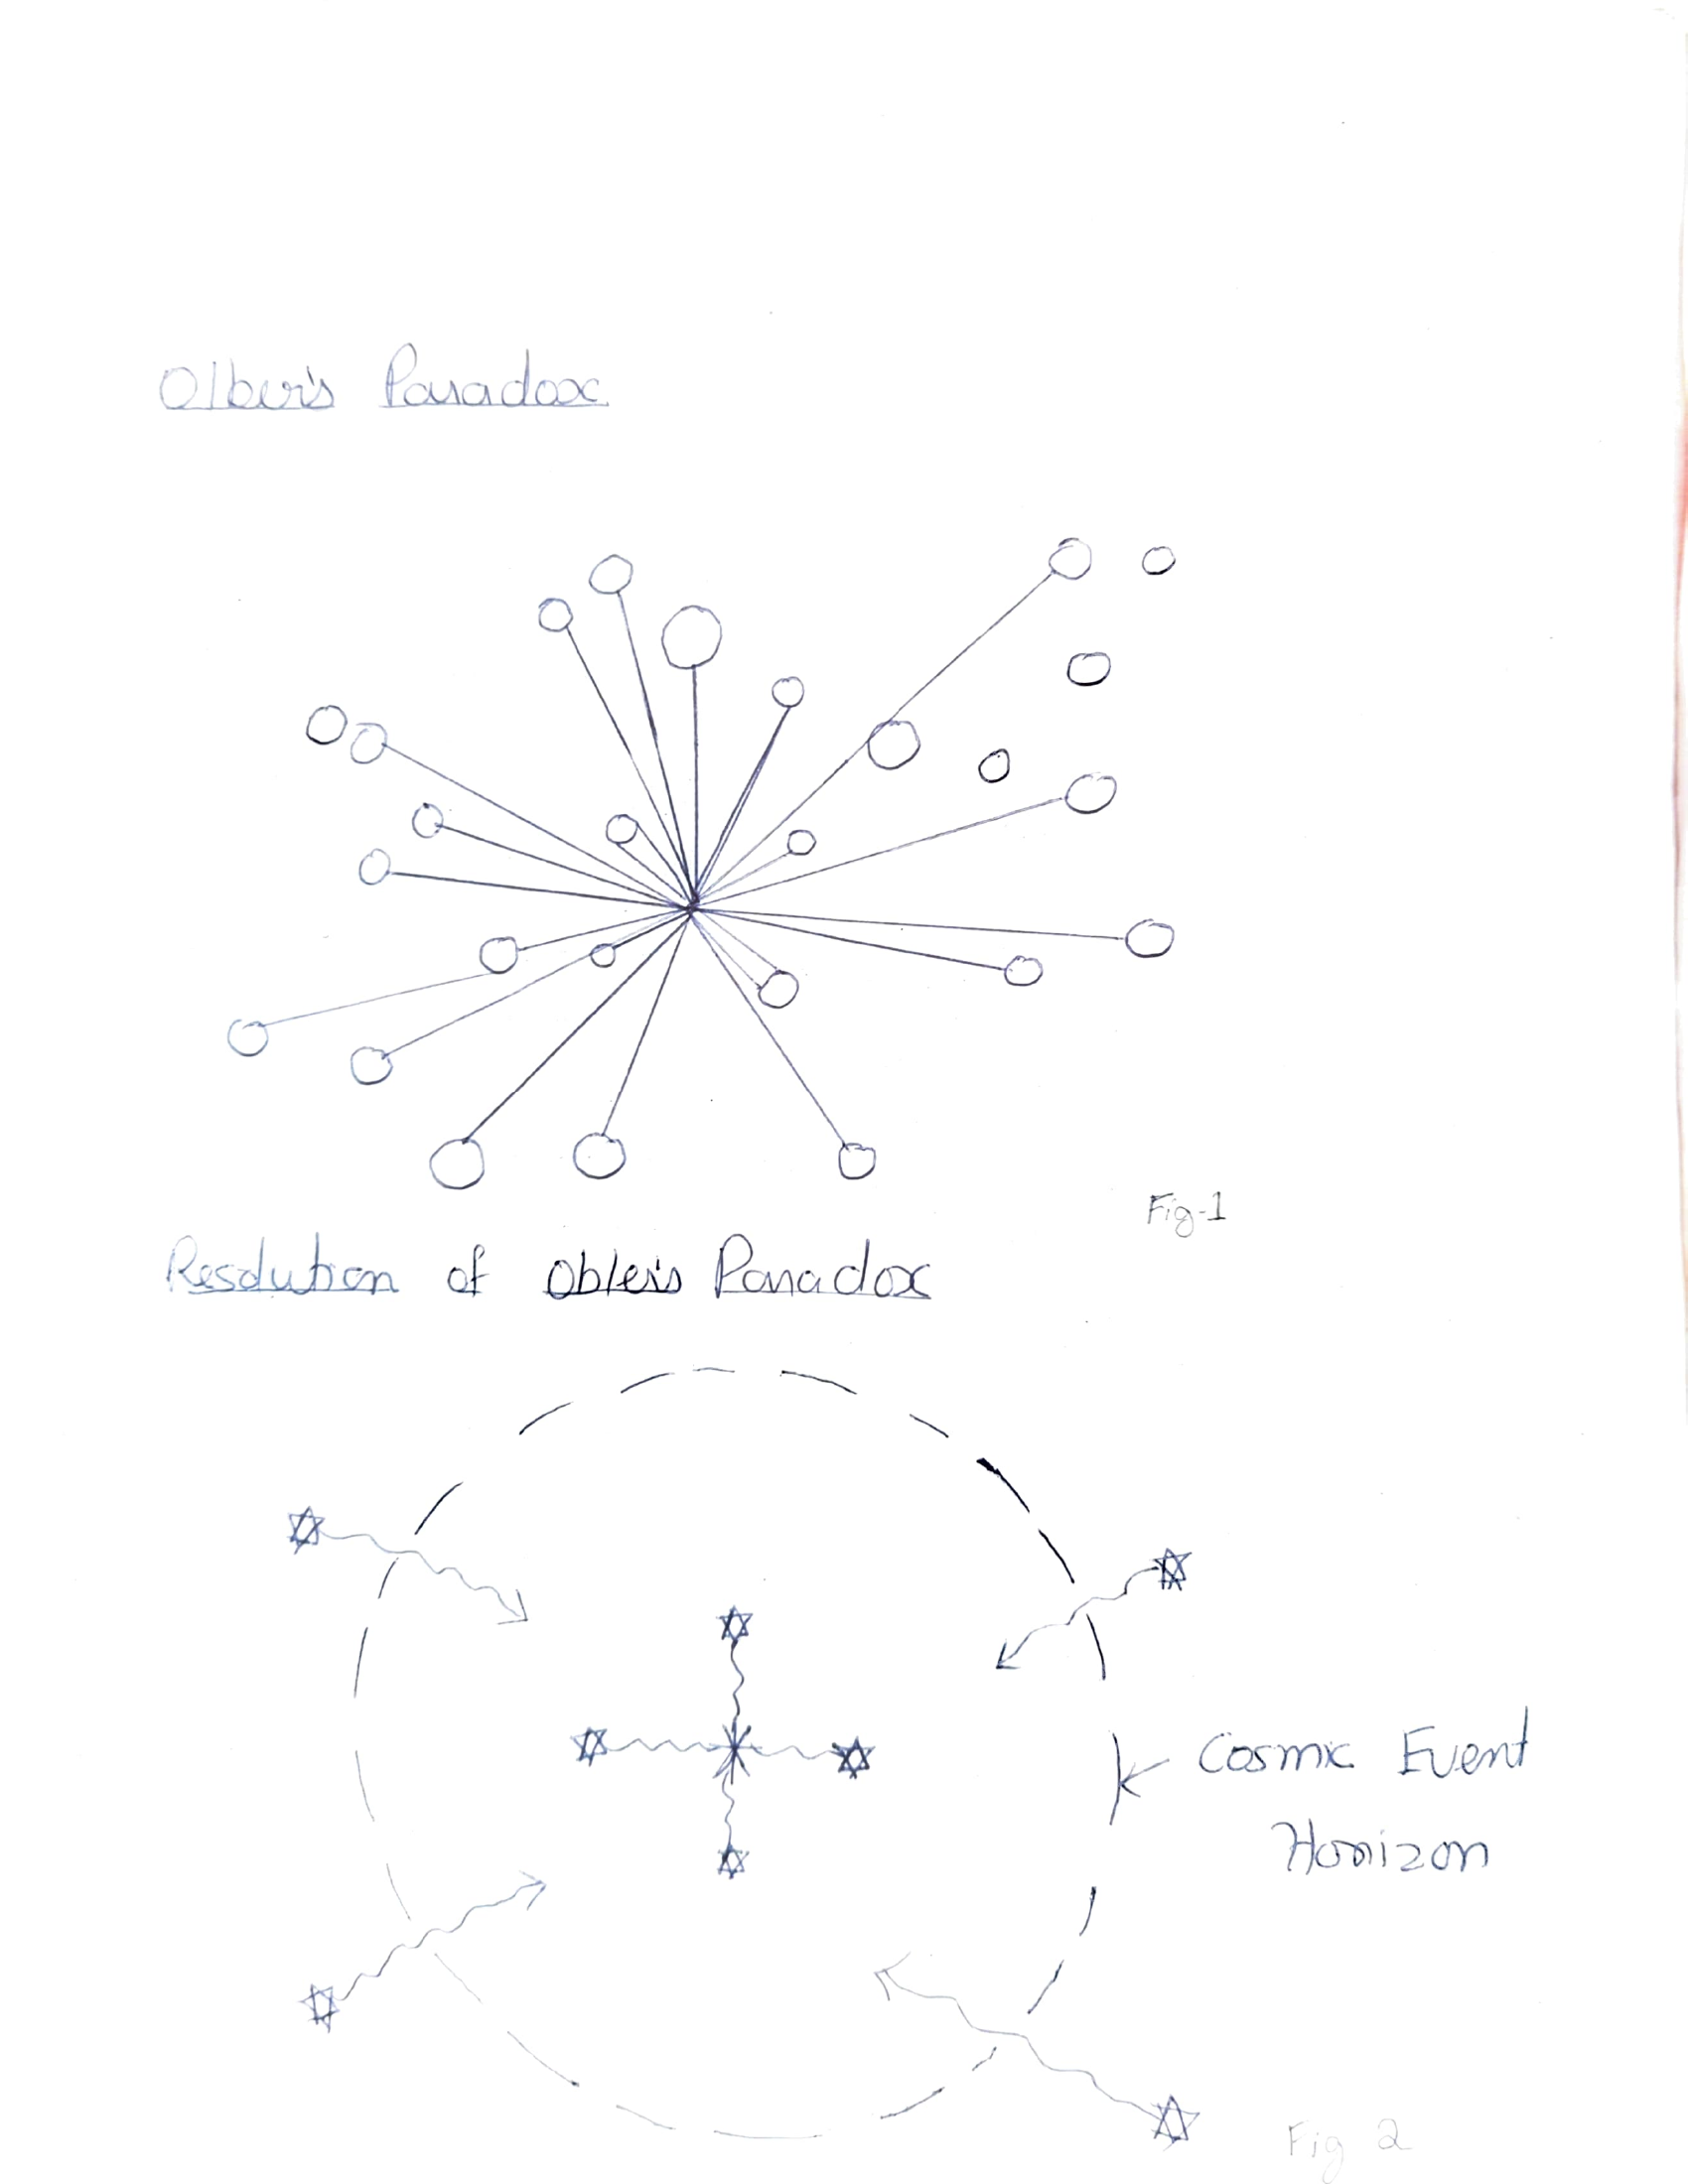 Olber's Paradox
Fig-1
Resolution of Obler's Paradox
Cosmic Event
Horizon
Fig 2